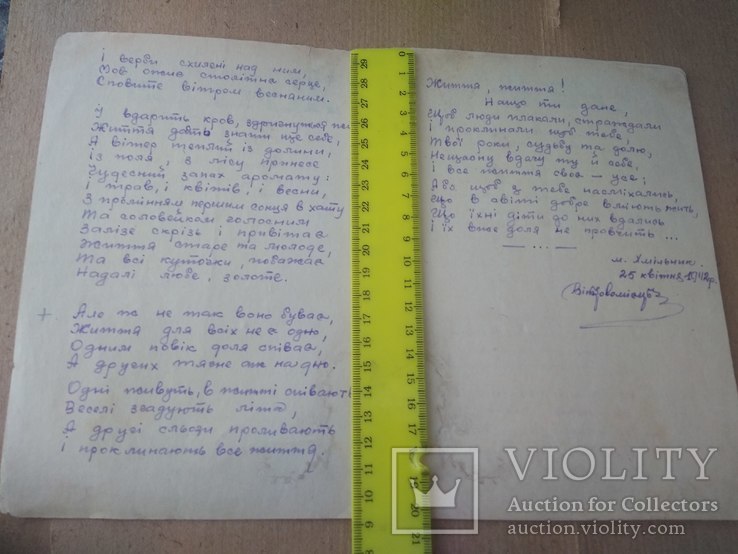 і верби схилені над ним,
Мов ожив столітнє серце,
Сповите вітром весняним.
У вдарить кров, здригнуться
Життя дать знати ще себе,
А вітер теплий із долини,
Із поля, з лісу принесе
Чудесний запах аромату:
і трав, і квітів, і весни,
З промінням першим сонця в хату
Та соловейком голосним
Залізе скрізь і привітає
Життя старе та молоде,
Та всі куточки поважає
Надалі любе, золоте.
+ Але ж не так воно буває,
Життя для всіх не є одно,
Одним повік доля співає,
А других тягне аж на дно.
Одні живуть, в житті співають
Веселі згадують літа,
А другі сльози проливають
і проклинають все життя.
Життя, життя!
Нащо ти дане,
Щоб люди плакали, страждали
і проклинали щоб тебе
Твої роки, судьбу та долю,
Нещасну вдачу ту й себе,
і все життя своє — усе;
Або щоб з тебе насміхались,
Що в світі добре вміють жить,
Що їхні діти до них вдались
і їх вже доля не провчить ...
— ... —
м. Хмільник
25 квітня 1942р.
29 28 27 26 25 24 23 22 21 20 19 18 17 16 15 14 13 12 11 10 9 8
0 1 2 3 4 5 6 7 8 9 10 11 12 13 14 15 16 17 18 19 20 21
VIOLITY
Auction for Collectors
auction.violity.com